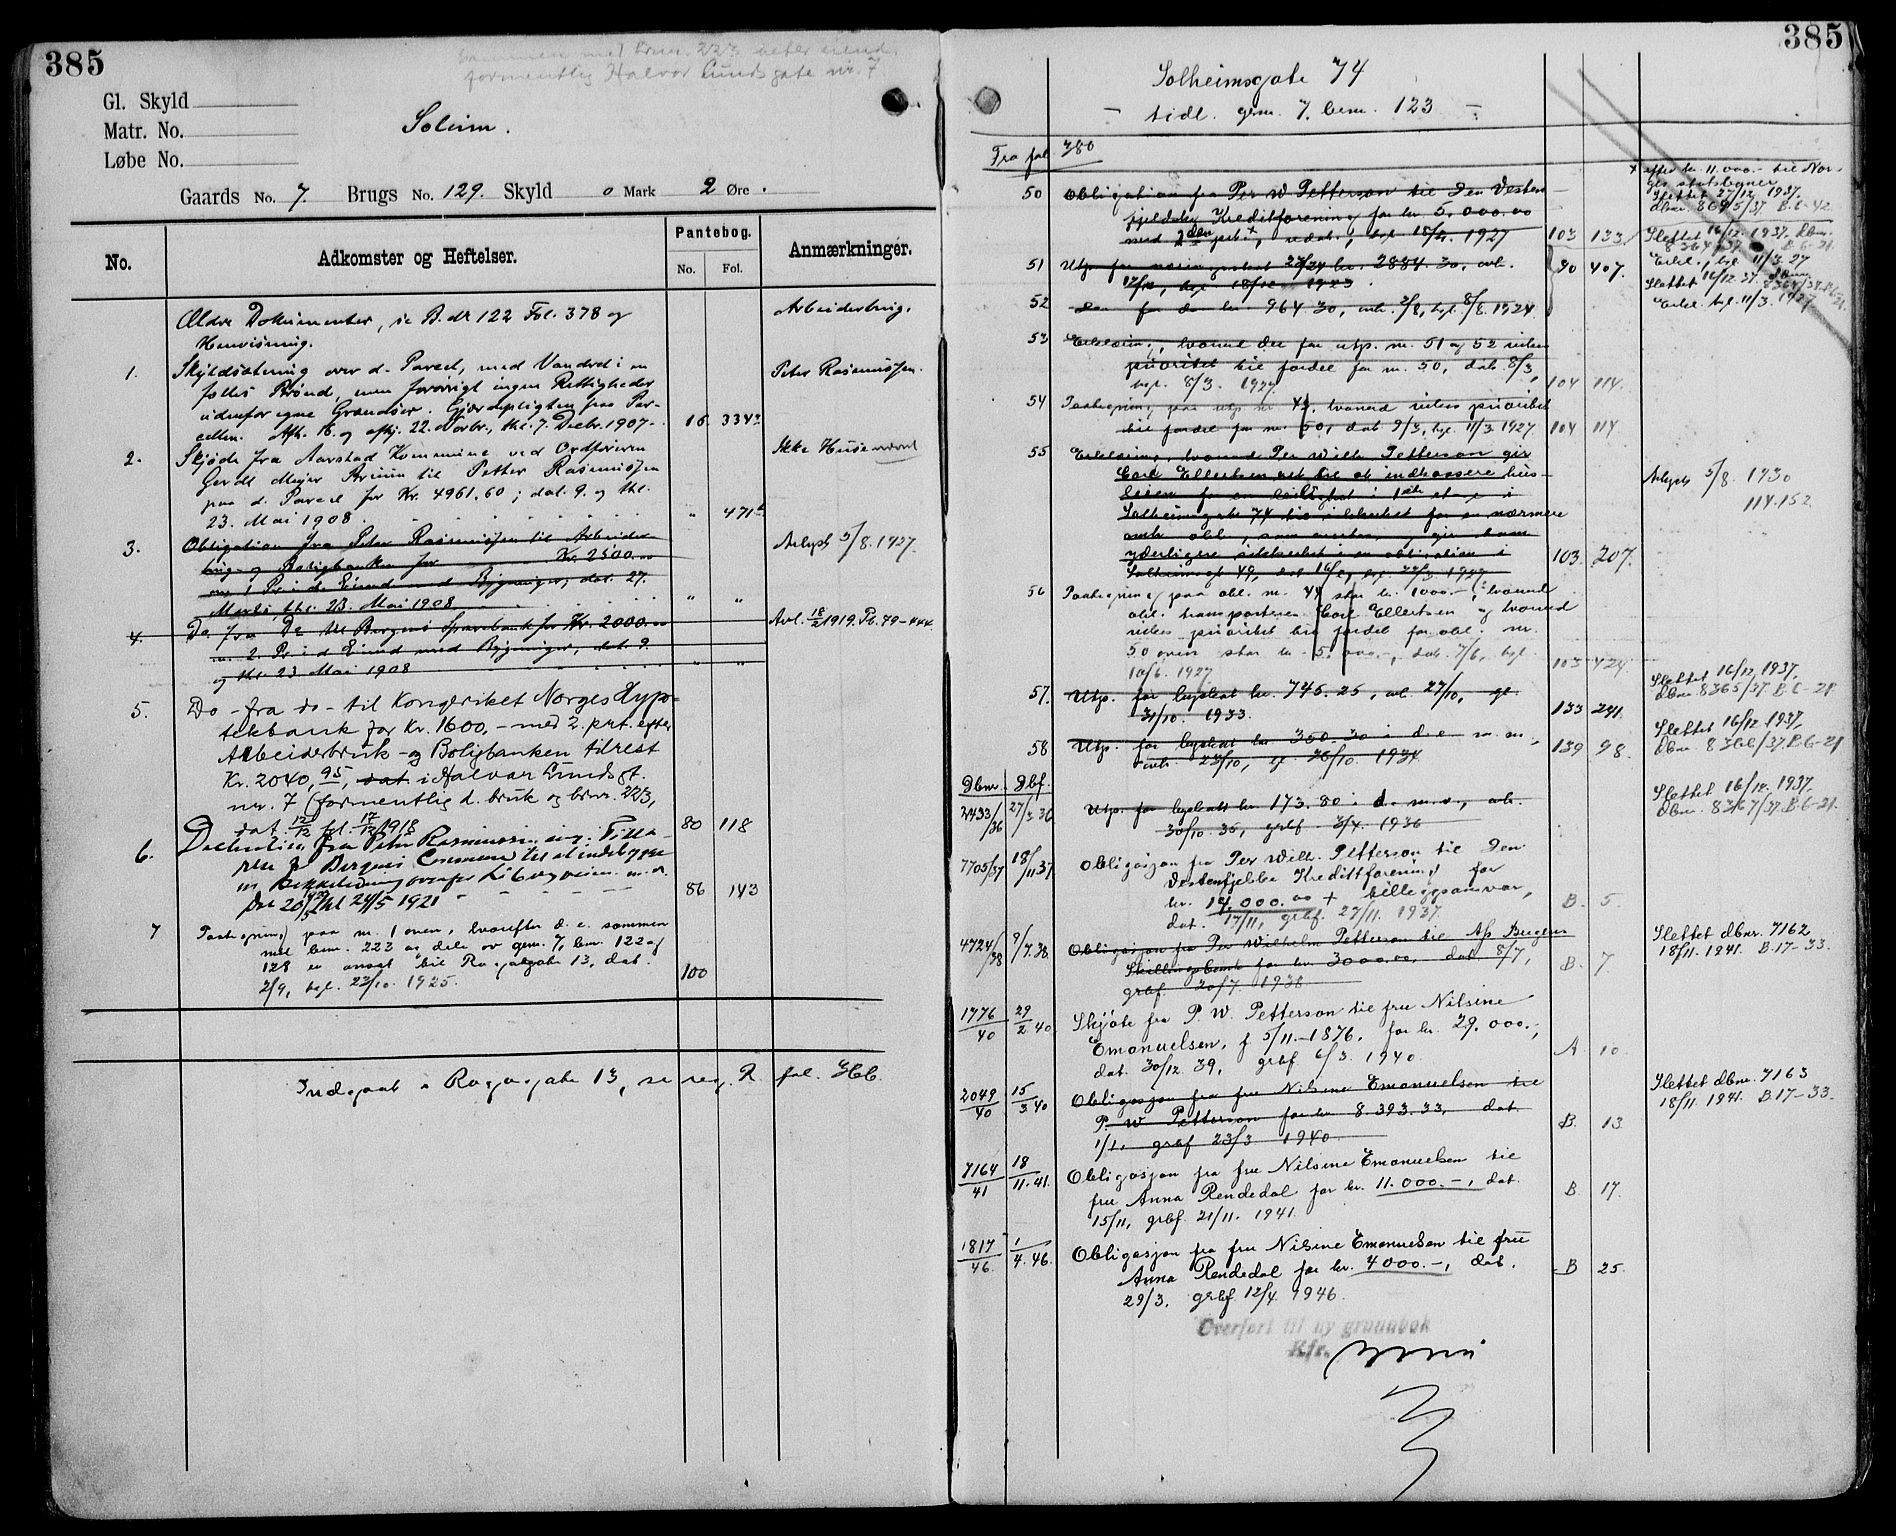 385
Sammen med brnr. 223
formentlig Halvor Lundsgate nr. 7
Gl. Skyld
Matr. No.
Løbe No.
Soleim.
Gaards No. 7. Brugs No. 129. Skyld 0 Mark 2 Øre.
No.
Adkomster og Heftelser.
Pantebog.
No. Fol.
Anmærkninger.
Ældre Dokumenter, se B. No 122 Fol. 378 og
Henvisning.
Arbeiderbrug.
1. Skyldsætning over d. Parcel, med Vandret i en
Peter Rasmussen.
fælles Brønd, men forøvrigt ingen Rettigheder
udenfor egne Grændser. Gjærdepligten paa Par-
cellen. Afh. 16. og afhj. 22. Novbr., thl. 7. Decbr. 1907. 16. 334
2. Skjøde fra Aarstad Kommune ved Ordføreren
Ikke Huse nævnt
Gerdt Meyer Bruun til Petter Rasmussen
paa d. Parcel for Kr. 4961,60; dat. 9. og thl.
23. Mai 1908 " 471
3. Obligation fra Peter Rasmussen til Arbeider
Avlyst 5/8. 1927.
brug- og Boligbanken for Kr. 2500.00
m. 1 Pr. i d. Eiend. med Bygninger, dat. 27.
Marts, thl. 23. Mai 1908 " "
4. Do. fra Do til Bergens Sparebank for Kr. 2000.00
Avl. 18/2 1919. Pb. 79-444.
m. 2. Pr. i d. Eiend. med Bygninger, dat. 9.
og thl. 23. Mai 1908 " "
5. Do - fra do - til Kongeriket Norges Hypo-
tekbank for Kr. 1600,- med 2. prt. efter
Arbeiderbruk- og Boligbanken tilrest
Kr. 2040,95, dat. i Halvor Lunds gt.
nr. 7 (formentlig d. bruk og brnr. 223,
dat. 12/12 tgl. 17/12 1918 80 118
6. Declaration fra Peter Rasmussen
relse for Bergens Commune til at indebygge
en Bekkeledning ovenfor Løbergveien m. v.
Dat 20/5 thl 24/5 1921 86 143
7 Paategning paa nr. 1 oven, hvorefter d. e. sammen
med brnr. 223 og dele av gnr. 7, brnr. 122 og
128 er ansat til Rogagate 13, dat.
2/9, tgl. 22/10. 1925. 100
Indgaat i Rogagate 13, se reg. R fol. 366.
385
Solheimsgate 74
- tidl. gnr. 7, brnr. 123 -
Fra fol. 380
50 Obligation fra Per W Petterson til Den Vesten-
fjeldske Kreditforening for kr 5.000.00
med 2den prt. +, vedat., tgl. 18/2. 1927 103 133
+ efter kr. 11.000.- til Nor-
ges statsbaner
Slettet 27/12. 1937.
dbnr. 8695/37. B. 6-42.
51 Utp. for næringsskat 23/24 kr. 2884.30, avh.
17/12, tgl. 18/12 1923. 90 407.
Slettet 16/12. 1937. Dbnr.
8364/37. B. 6-21.
Erkl., tgl. 11/3. 27
52 do for do kr 964.30, avh. 2/8, tgl. 8/8. 1924
Slettet 16/12. 37. dbnr.
8364/37. B. 6-21.
Erkl. tgl. 11/3. 1927
53 Erklæring, hvorved der for utp. nr. 51 og 52 vikes
prioritet til fordel for nr. 50, dat 8/3,
tgl. 8/3. 1927 104 114.
54 Paategning paa utp. nr 49, hvorved vikes prioritet
til fordel for nr. 50, dat 9/3, tgl. 11/3. 1927 104 114
55 Erklæring, hvorved Per Wilh Petterson gir
Carl Ellertsen ret til at indkassere hus-
leien for en leilighet i 1ste et. i
Solheimsgate 74 til sikkerhet for en nærmere
omh. obl., som
yderligere sikkerhet i en obligation i
Solheimsgt 49, dat 16/2, tgl. 22/3. 1927. 103. 207.
Avlyst 5/8. 1930
114.152.
56 Paategning paa obl. nr. 44 stor kr. 1000.-, hvorved
obl. transporteres Carl Ellertsen og hvorved
vikes prioritet til fordel for obl. nr.
50 oven stor kr. 5.000.-, dat. 7/6, tgl.
10/6. 1927. 103 424.
57. Utp. for byskat kr. 745.25, avh. 27/10, gl.
31/10. 1933. 133 241.
Slettet 16/12. 1937.
dbnr. 8365/37. B. 6-21.
58 Utp. for byskat kr 350.30 i d. e m. m.,
avh. 23/10, gl 26/10. 1934 139 98.
Slettet 16/12. 1937.
dbnr. 8366/37. B. 6-21
Dbnr. Dbf.
2433/36 27/3 36 Utp. for byskatt kr. 173.80 i d. m. v., avh.
30/10 35, grbf 3/4. 1936
Slettet 16/12. 1937.
dbnr. 8367/37. B. 6-21.
7705/37 18/11 37 Obligasjon fra Per Wilh. Petterson til Den
Vestenfjelske Kredittforening for
kr. 14.000.00 + tilleggsansvar,
dat. 17/11, grbf. 27/11. 1937. B. 5.
4724/38 9/7.38. Obligasjon fra Per Wilhelm Petterson til A/s Bergens
Skillingsbank for kr. 3000.00, dat 8/7,
grbf. 20/7. 1938 B. 7.
Slettet dbnr. 7162
18/11. 1941. B. 17-33.
1776/40 29/2 40 Skjøte fra P. W. Petterson til fru Nilsine
Emanuelsen, f 5/11-1876, for kr. 29.000.-,
dat. 30/12 39, grbf 6/3. 1940. A 10.
2049/40 15/3 40 Obligasjon fra fru Nilsine Emanuelsen til
P. W Petterson for kr 8393.33, dat.
1/1, grbf 23/3 1940. B. 13
Slettet dbnr. 7163
18/11. 1941. B. 17-33.
7164/41 18/11.41. Obligasjon fra fru Nilsine Emanuelsen til
fru Anna Rendedal for kr. 11.000.-, dat.
15/11, grbf. 21/11. 1941. B. 17.
1817/46. 1/4.46. Obligasjon fra fru Nilsine Emanuelsen til fru
Anna Rendedal for kr. 4000.-, dat.
29/3, grbf 12/4 1946. B 25.
Overført til ny grunnbok
Kfr.